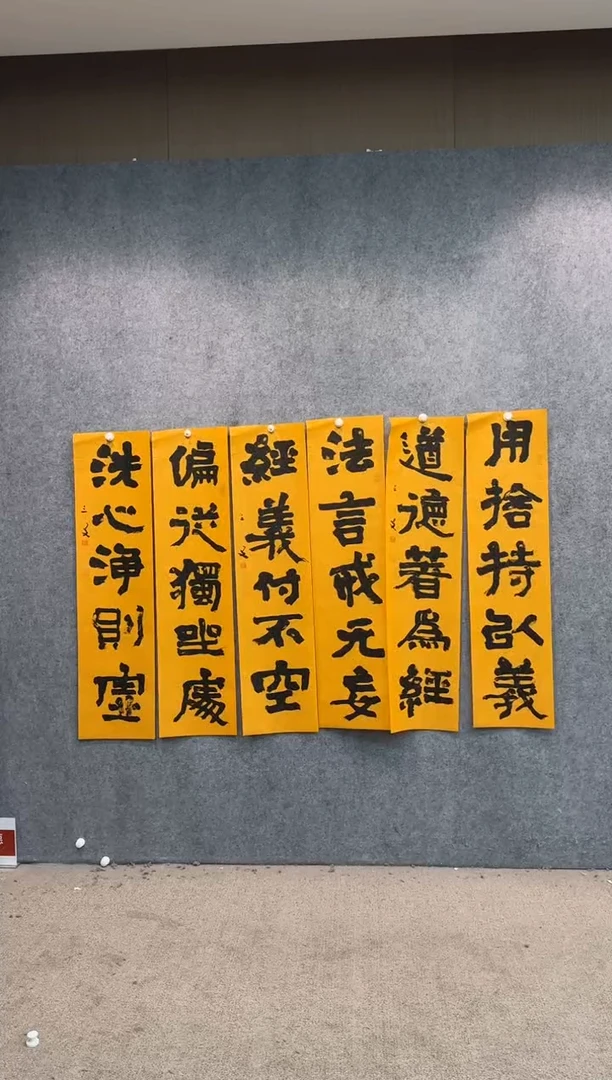 用捨持以義
道德著為經
法言戒无妄
經義付不空
偏從獨坐處
洗心淨則虛